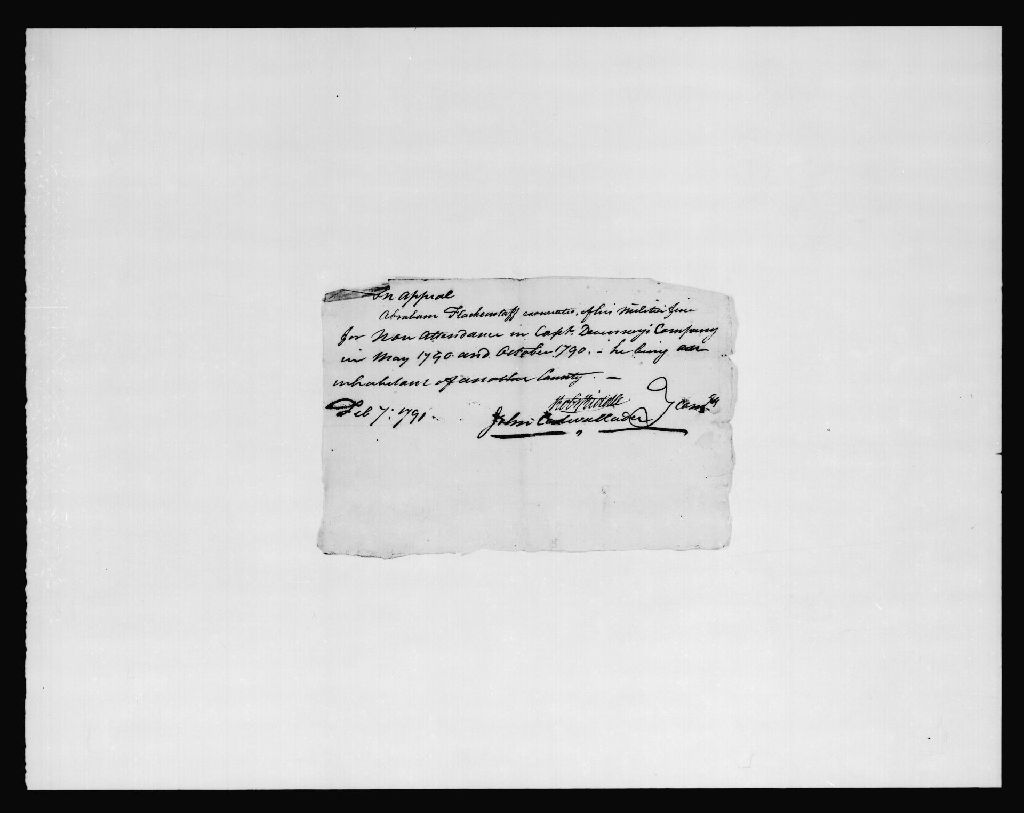 In Appeal
Abraham exonerated of his Militia fine
for Non Attendance in Capt. Company
in May 1790 and October 1790. – he being an
inhabitant of another County. –
Feb 7: 1791.
John Cadwallader